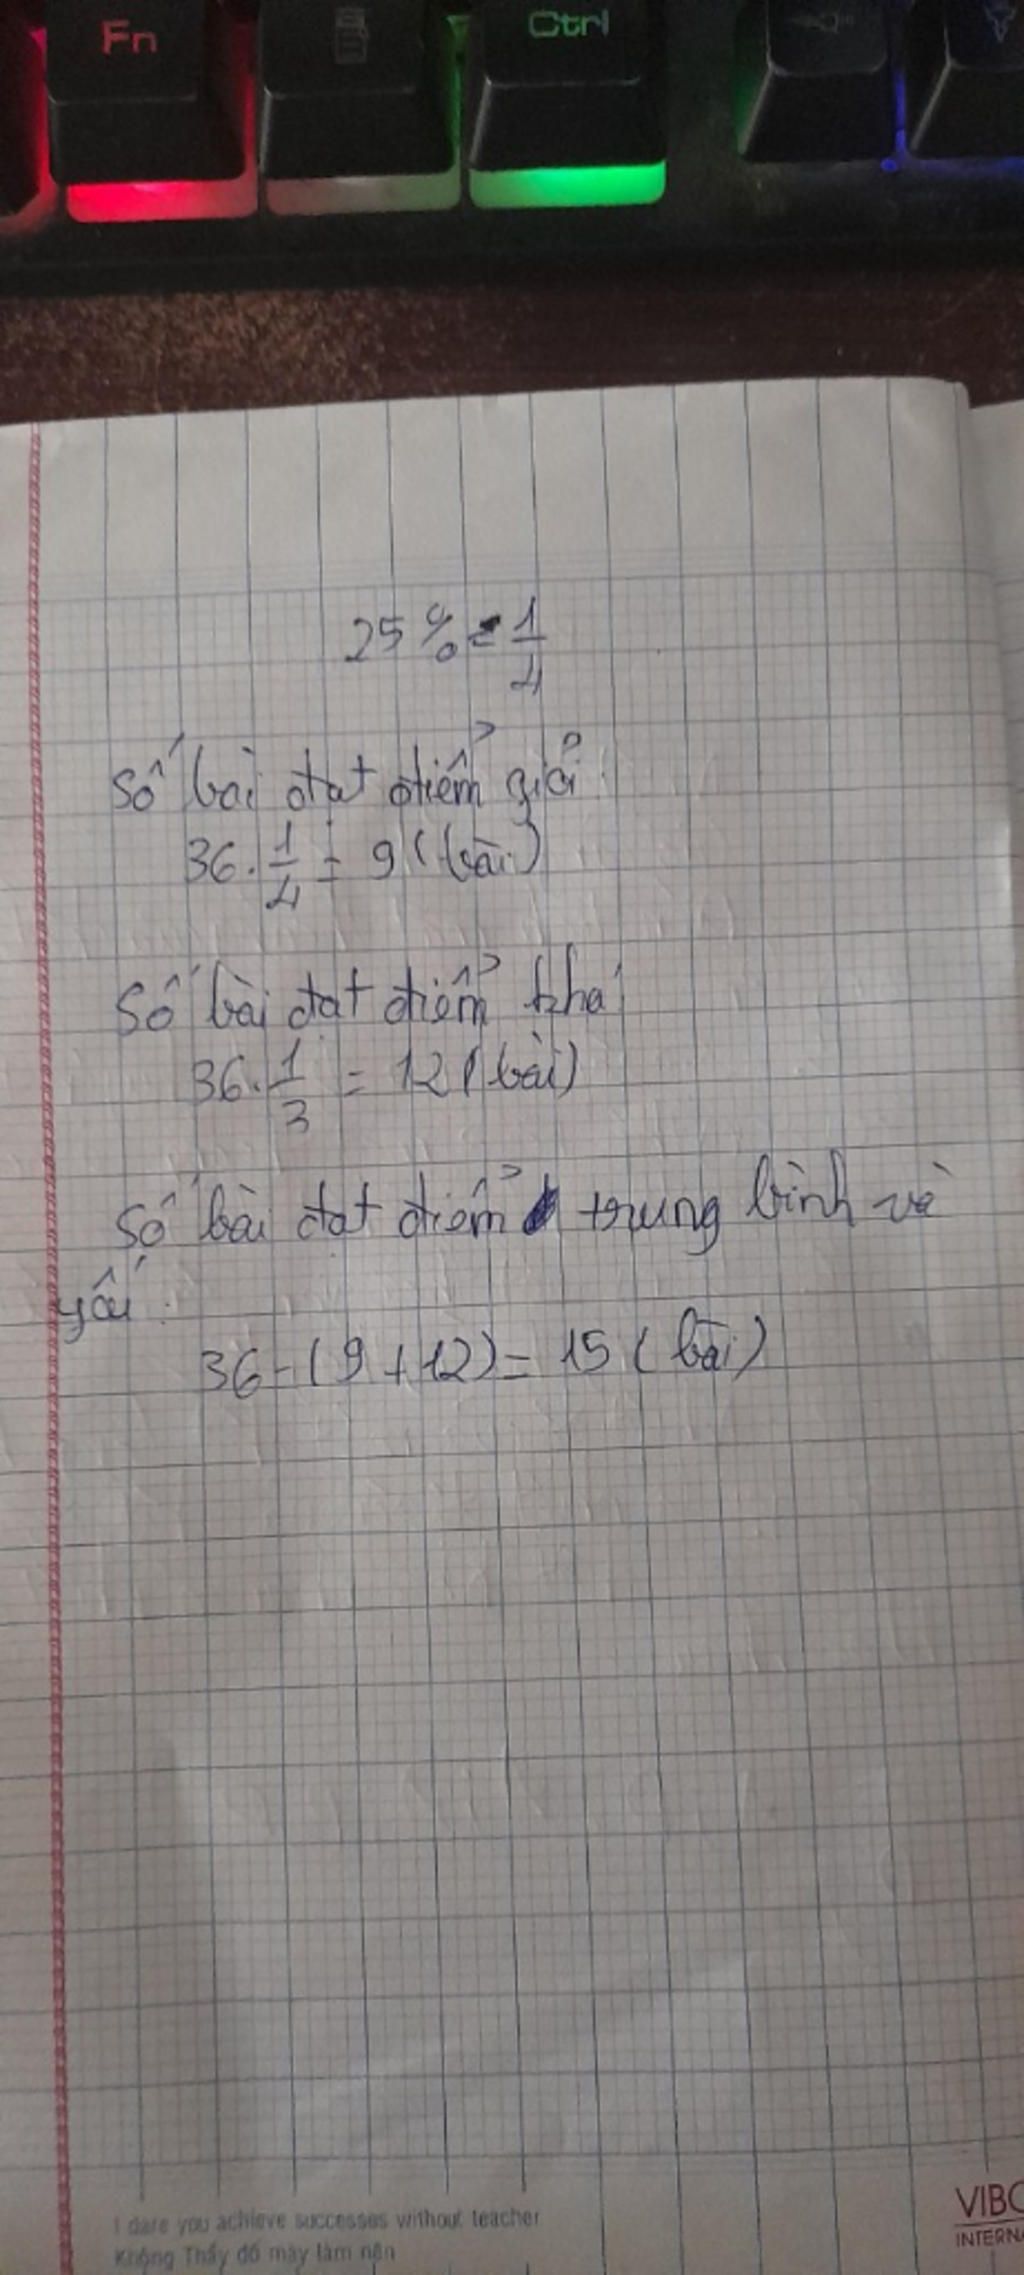 Fn
Ctrl
25% = 1/4
Số bài đạt điểm giỏi:
36 . 1/4 = 9 (bài)
Số bài đạt điểm khá
36 . 1/3 = 12 (bài)
Số bài đạt điểm trung bình và
yếu:
36 - (9 + 12) = 15 (bài)
I dare you achieve successes without teacher
Không Thầy đố mày làm nên
VIBO
INTERNA